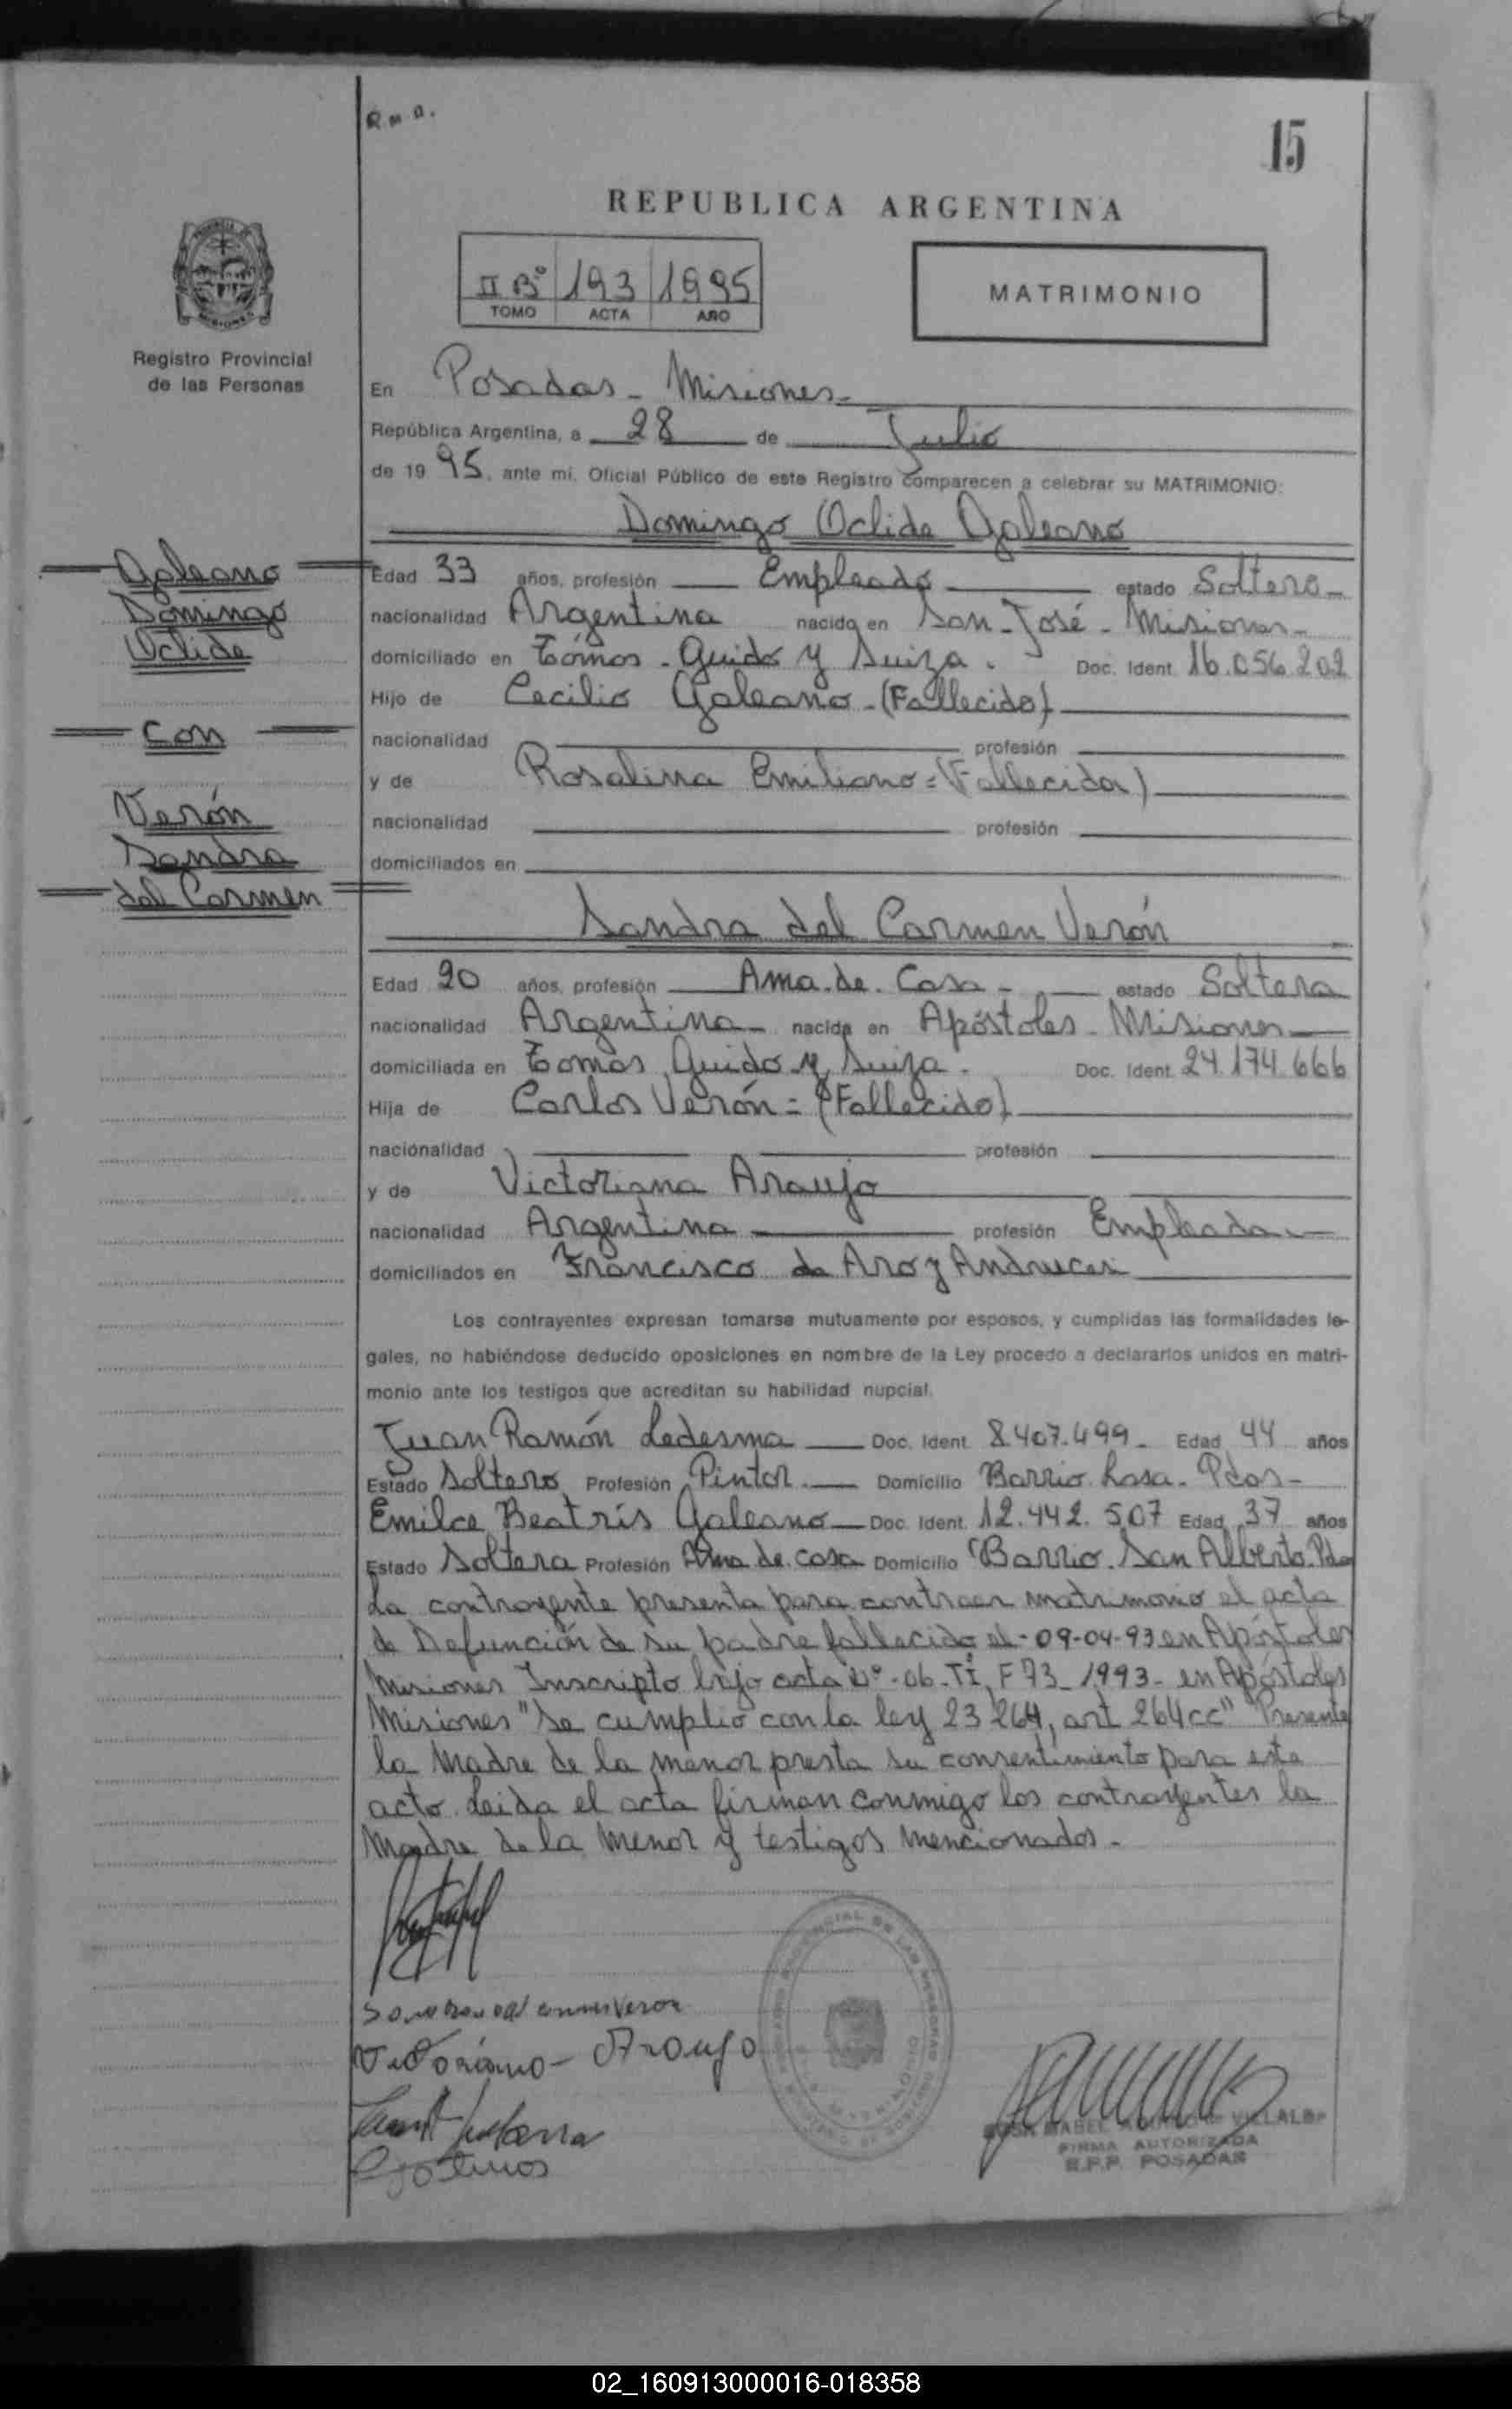 R.M.A.
15
REPUBLICA ARGENTINA
II Bº 193 1995
TOMO ACTA AÑO
MATRIMONIO
Registro Provincial
de las Personas
En Posadas - Misiones -
República Argentina, a 28 de Julio
de 19 95, ante mí, Oficial Público de este Registro comparecen a celebrar su MATRIMONIO:
Domingo Oclide Galeano
Galeano
Domingo
Oclide
Con
Verón
Sandra
del Carmen
Edad 33 años, profesión Empleado estado Soltero -
nacionalidad Argentina nacido en San José - Misiones -
domiciliado en Tomás Guido y Suiza. Doc. Ident. 16.056.202
Hijo de Cecilio Galeano - (Fallecido)
nacionalidad profesión
y de Rosalina Emiliano = (Fallecida)
nacionalidad profesión
domiciliados en
Sandra del Carmen Verón
Edad 20 años, profesión Ama de Casa - estado Soltera
nacionalidad Argentina - nacida en Apóstoles - Misiones
domiciliada en Tomás Guido y Suiza. Doc. Ident. 24.174.666
Hija de Carlos Verón = (Fallecido)
nacionalidad profesión
y de Victoriana Araujo
nacionalidad Argentina profesión Empleada
domiciliados en Francisco de Aro y
Los contrayentes expresan tomarse mutuamente por esposos, y cumplidas las formalidades le-
gales, no habiéndose deducido oposiciones en nombre de la Ley procedo a declararlos unidos en matri-
monio ante los testigos que acreditan su habilidad nupcial.
Juan Ramón Ledesma Doc. Ident. 8.407.499 - Edad 44 años
Estado Soltero Profesión Pintor Domicilio Barrio Pdas -
Emilce Beatrís Galeano Doc. Ident. 12.442.507 Edad 37 años
Estado Soltera Profesión Ama de casa Domicilio Barrio San Alberto. Pdas
La contrayente presenta para contraer matrimonio el acta
de Defunción de su padre fallecido el - 09-04-93 en Apóstoles
Misiones Inscripto bajo acta Nº - 06 - TI, F 73 - 1993 - en Apóstoles
Misiones "Se cumplio con la ley 23264, art 264 cc" Presente
la Madre de la menor presta su consentimiento para este
acto. Leida el acta firman conmigo los contrayentes la
Madre de la menor y testigos mencionados -
Victoriano - Araujo
REGISTRO PROVINCIAL DE LAS PERSONAS
VILLALBA
FIRMA AUTORIZADA
R.P.P. POSADAS
02_160913000016-018358